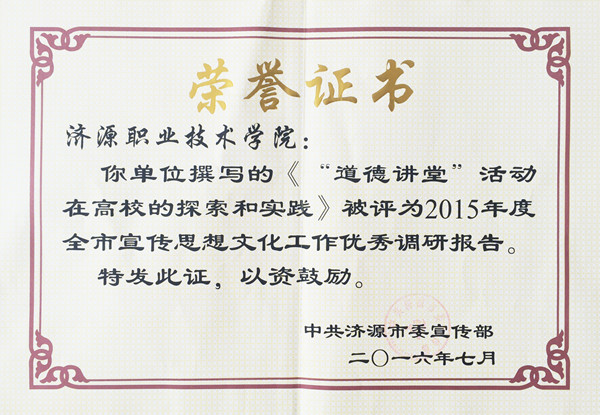 荣誉证书
济源职业技术学院：
你单位撰写的《“道德讲堂”活动
在高校的探索和实践》被评为2015年度
全市宣传思想文化工作优秀调研报告。
特发此证，以资鼓励。
中共济源市委宣传部
二〇一六年七月